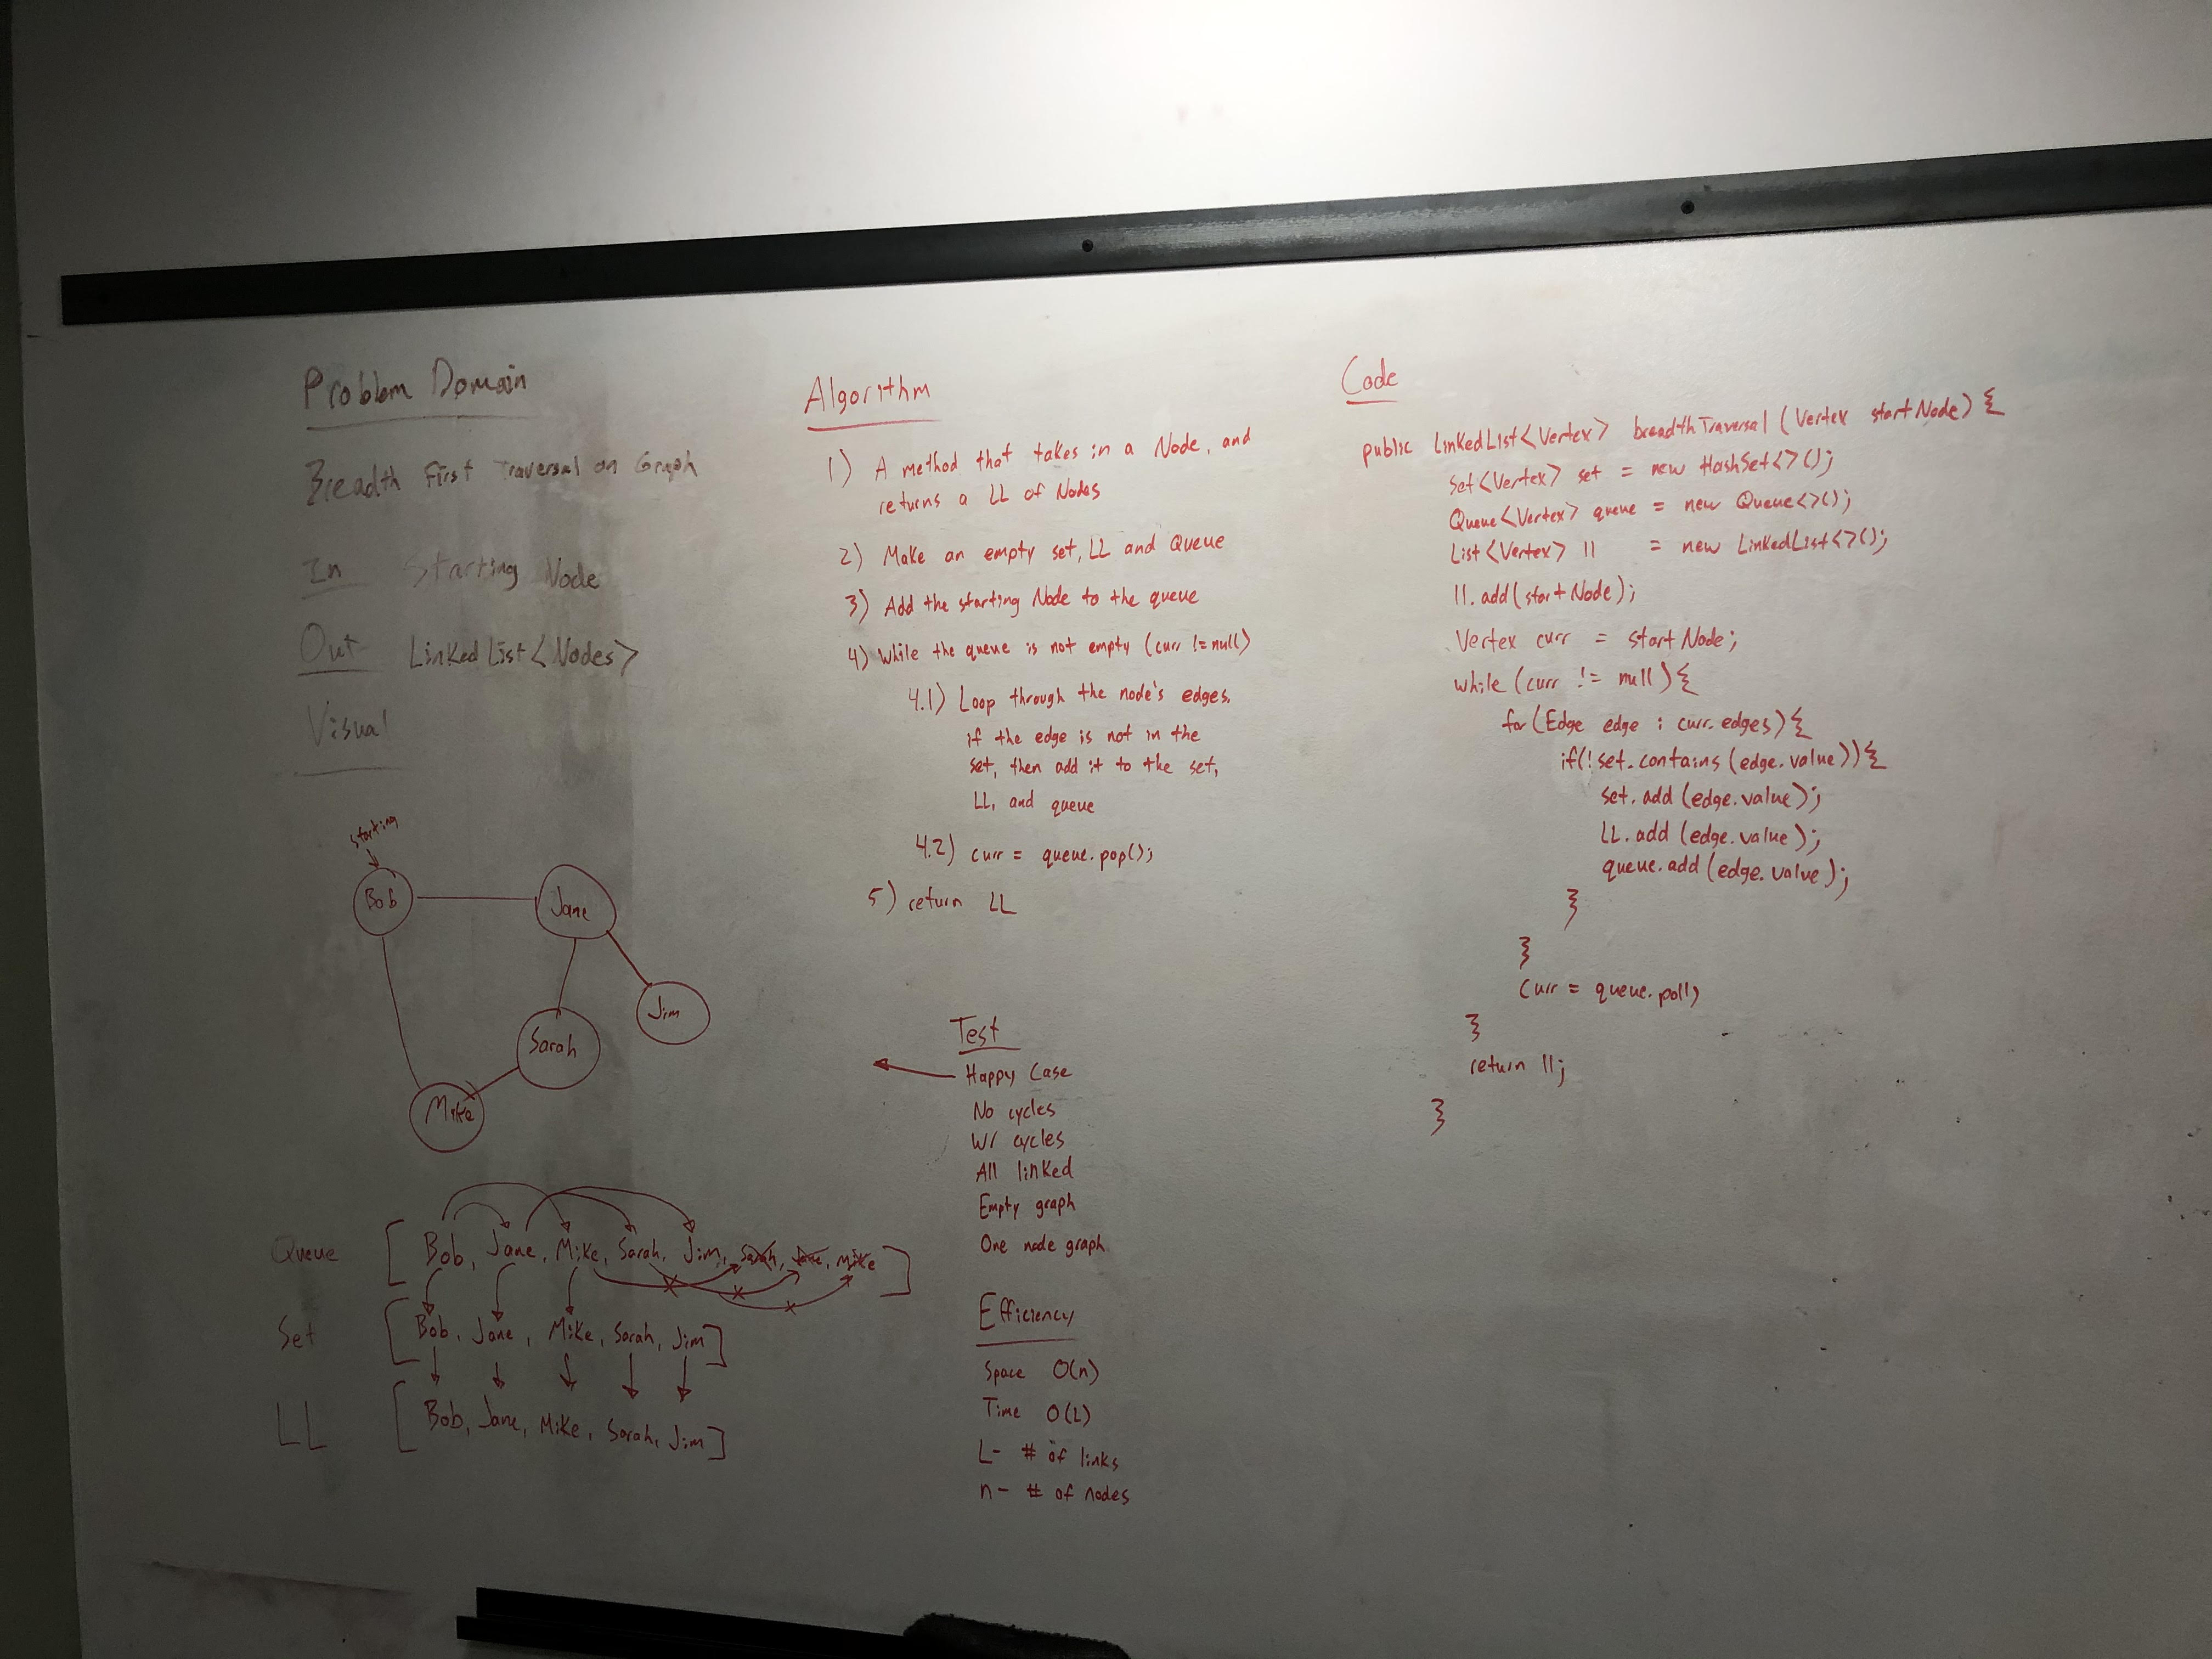 Problem Domain
Breadth First Traversal on Graph
In Starting Node
Out LinkedList<Nodes>
Visual
Starting
Bob
Jane
Jim
Sarah
Mike
Queue [Bob, Jane, Mike, Sarah, Jim, Sarah, Jane, Mike]
Set [Bob, Jane, Mike, Sarah, Jim]
LL [Bob, Jane, Mike, Sarah, Jim]
Algorithm
1) A method that takes in a Node, and
returns a LL of Nodes
2) Make an empty set, LL and Queue
3) Add the starting Node to the queue
4) While the queue is not empty (curr != null)
4.1) Loop through the node's edges.
if the edge is not in the
set, then add it to the set,
LL, and queue
4.2) curr = queue.pop();
5) return LL
Test
Happy Case
No cycles
W/ cycles
All linked
Empty graph
One node graph
Efficiency
Space O(n)
Time O(L)
L- # of links
n- # of nodes
Code
public LinkedList<Vertex> breadthTraversal (Vertex startNode) {
Set<Vertex> set = new HashSet<>();
Queue<Vertex> queue = new Queue<>();
List<Vertex> ll = new LinkedList<>();
ll.add(startNode);
Vertex curr = startNode;
while (curr != null) {
for (Edge edge : curr.edges) {
if(!set.contains (edge.value)) {
set.add (edge.value);
LL.add (edge.value);
queue.add (edge.value);
}
}
curr = queue.poll)
}
return ll;
}